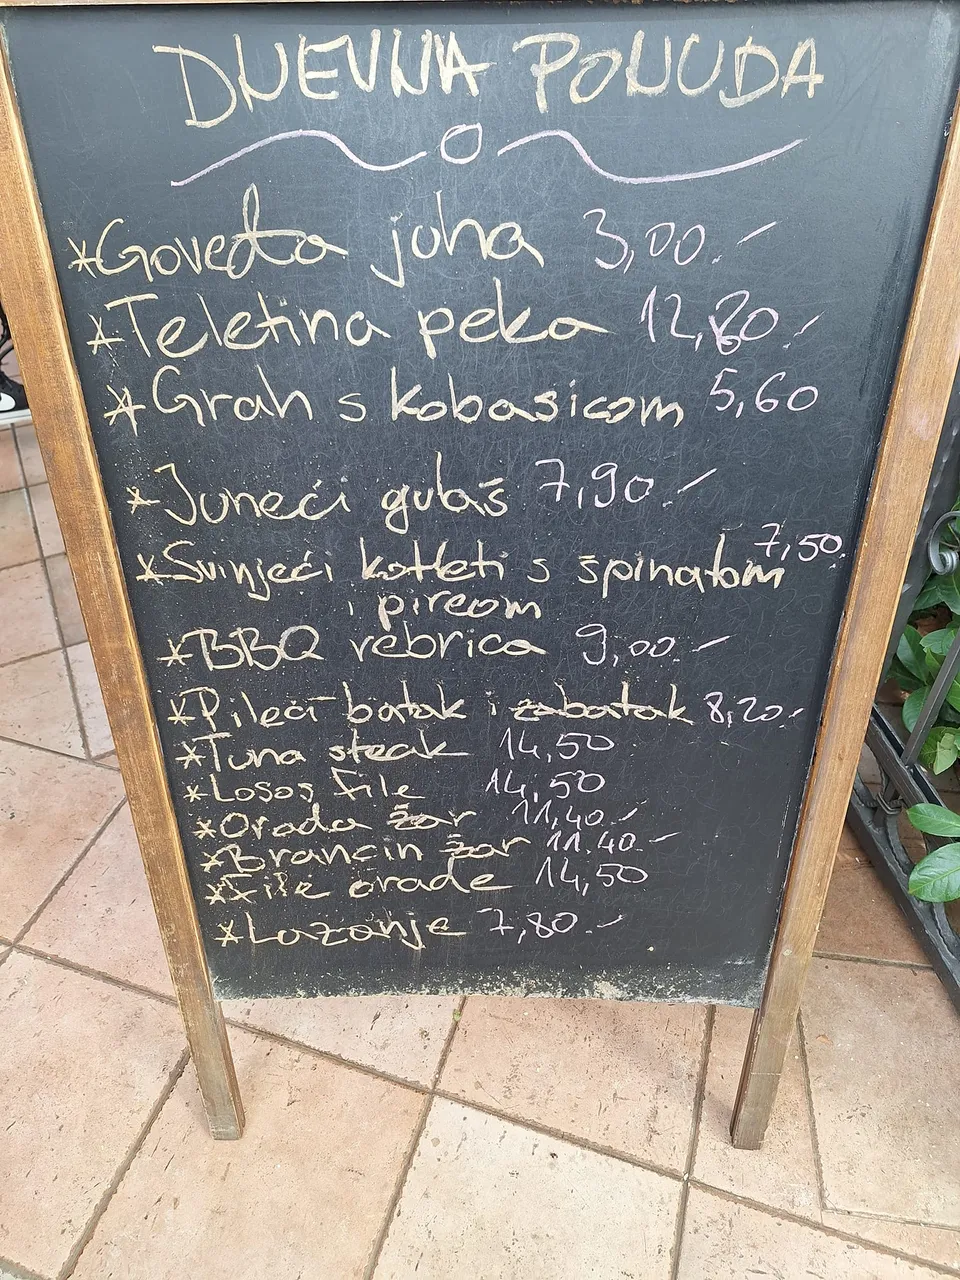 DNEVNA PONUDA
*Goveđa juha 3,00.-
*Teletina peka 12,80.-
*Grah s kobasicom 5,60
*Juneći gulaš 7,90.-
*Svinjeći kotleti s špinatom 7,50.
i pireom
*BBQ rebrica 9,00.-
*Pileći batak i zabatak 8,20.-
*Tuna steak 14,50
*Losos file 14,50
*Orada žar 11,40.-
*Brancin žar 11.40.-
*File orade 14,50
*Lazanje 7,80.-